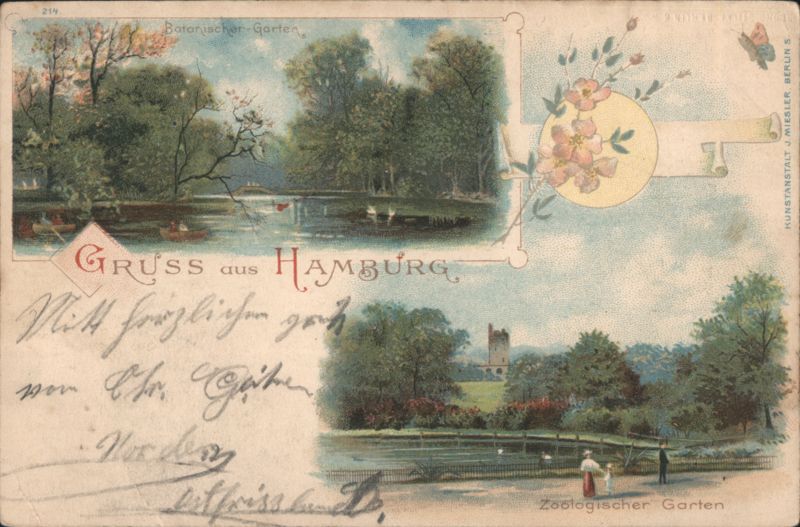 214.
Botanischer-Garten.
KUNSTANSTALT J. MIESLER, BERLIN S.
GRUSS aus HAMBURG
Mitt herzlichem gruß
vom Chr.
Norden
ostfriesland
Zoologischer Garten